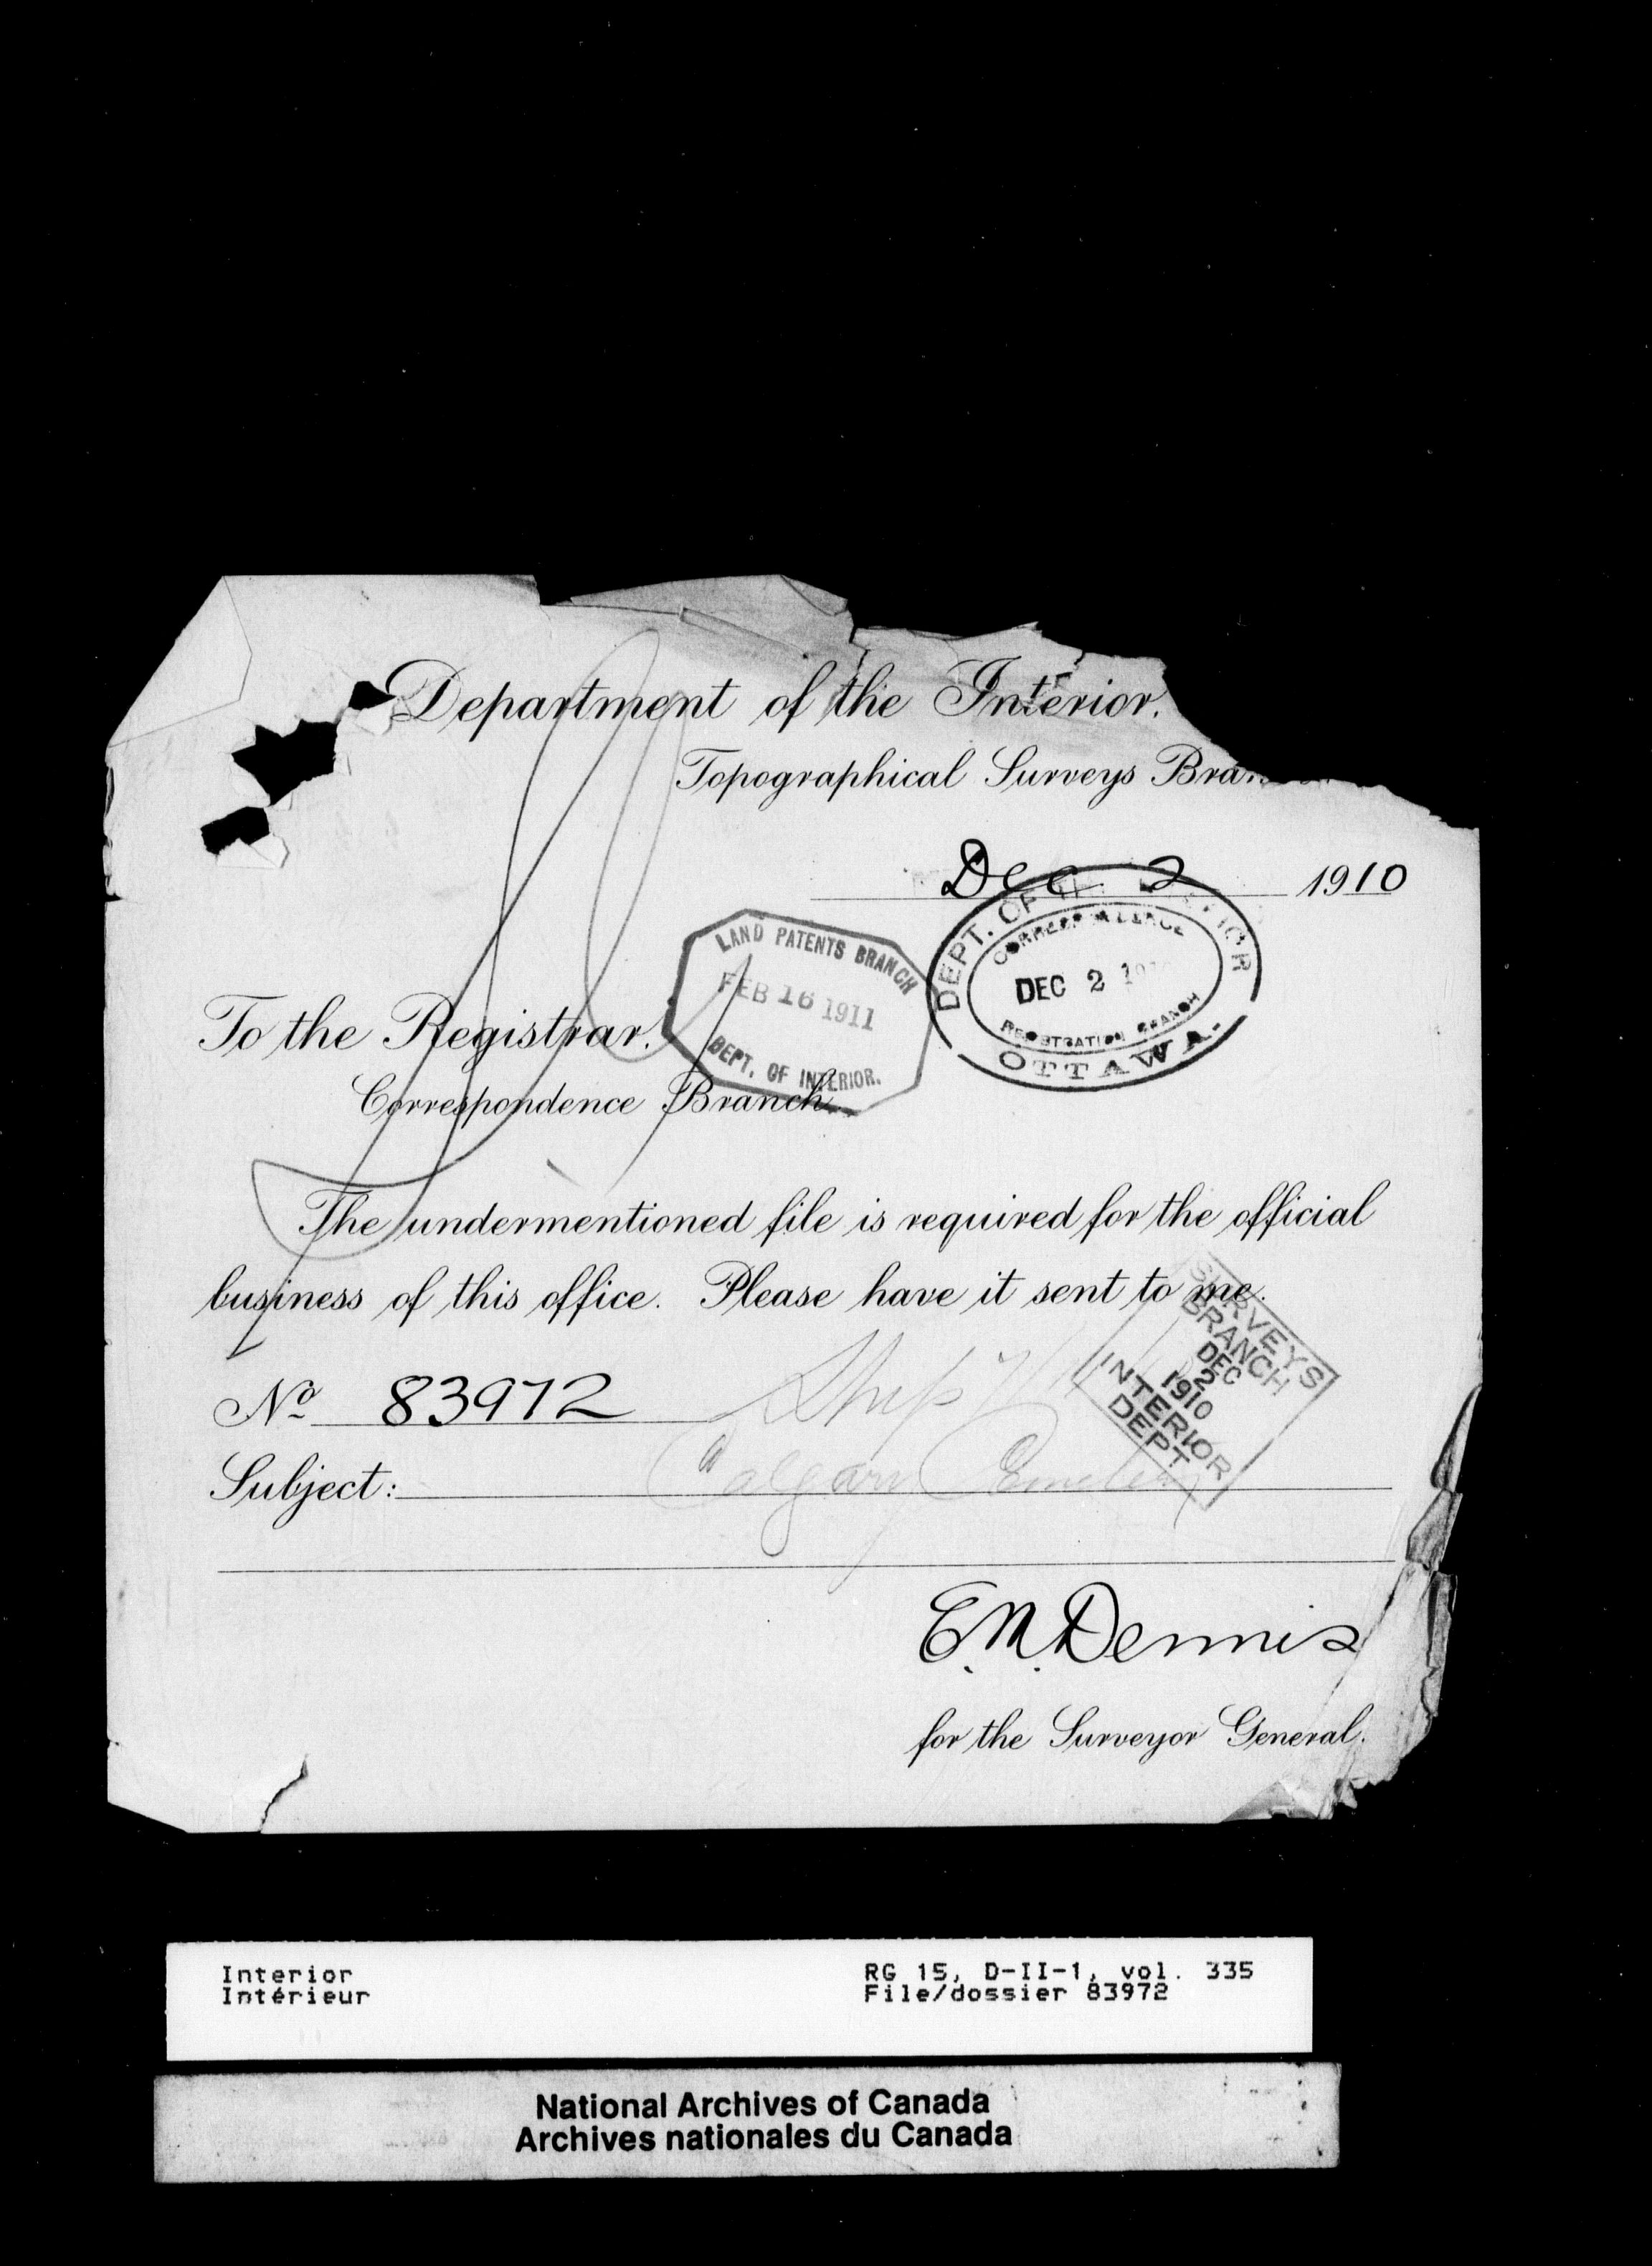 Department of the Interior.
Topographical Surveys
Dec 2 1910
LAND PATENTS BRANCH
FEB 16 1911
DEPT. OF INTERIOR.
DEPT. OF
CORRESPONDENCE
DEC 2
REGISTRATION BRANCH
OTTAWA.
To the Registrar.
Correspondence Branch.
The undermentioned file is required for the official
business of this office. Please have it sent to me.
SURVEYS
BRANCH
DEC
2
1910
INTERIOR
DEPT
No 83972
Subject: Calgary Cemetery
E.M. Dennis
for the Surveyor General.
Interior
Intérieur
RG 15, D-II-1, vol. 335
File/dossier 83972
National Archives of Canada
Archives nationales du Canada